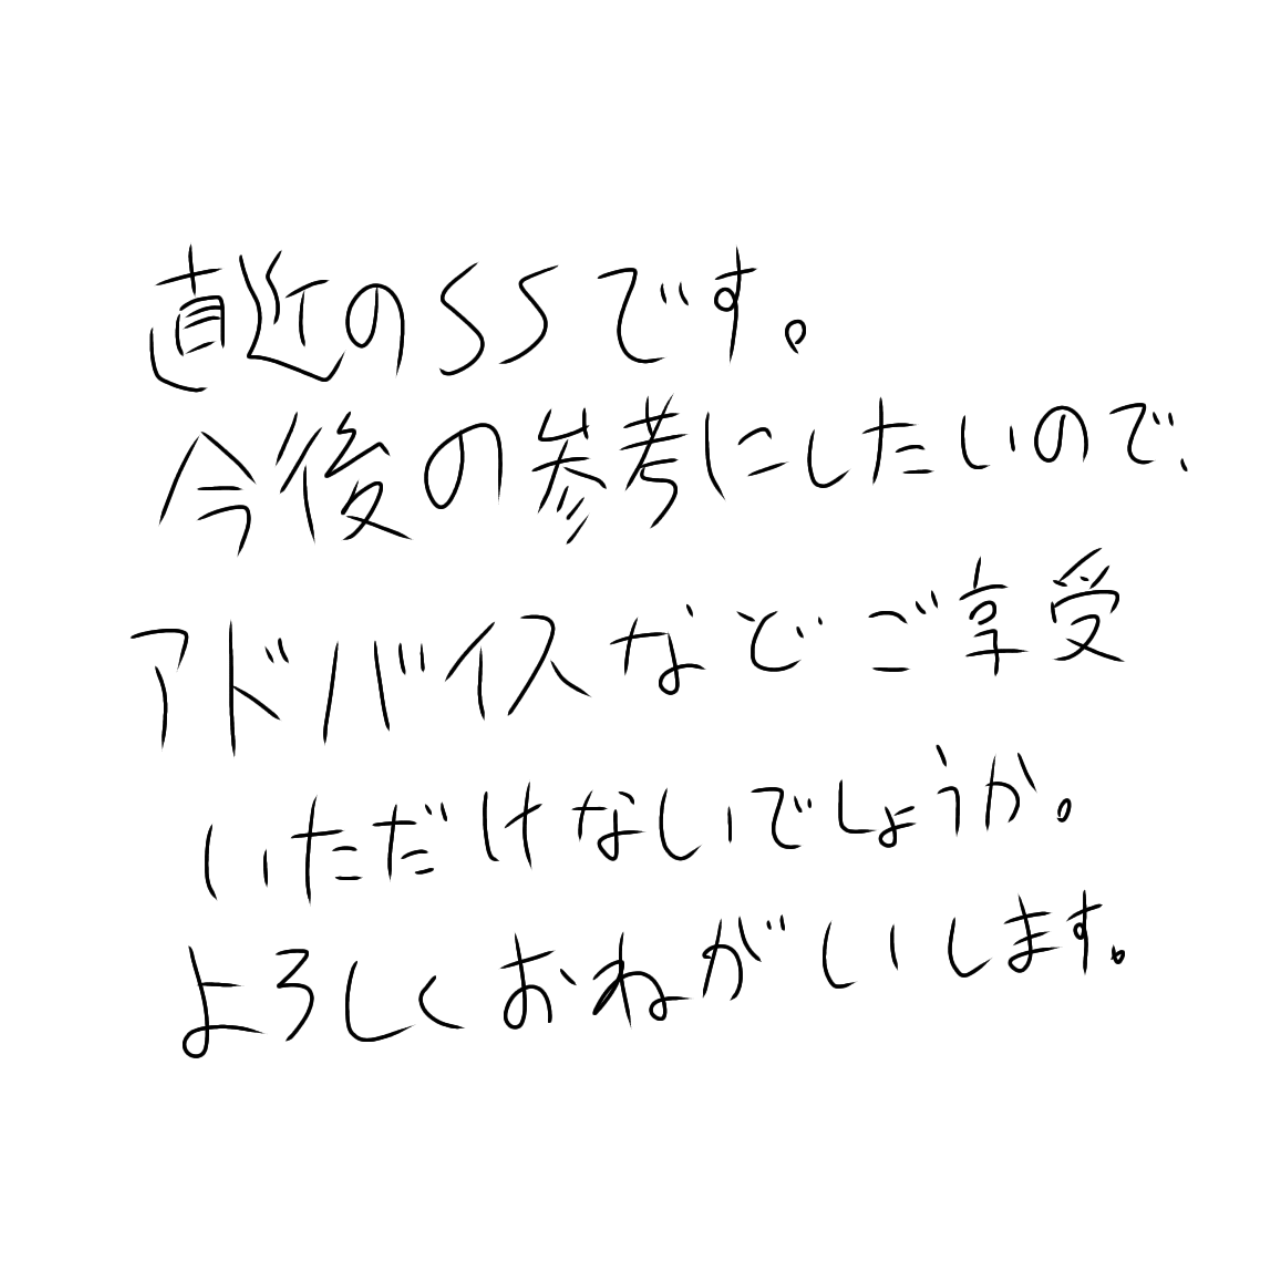 直近のSSです。
今後の参考にしたいので、
アドバイスなどご享受
いただけないでしょうか。
よろしくおねがいします。